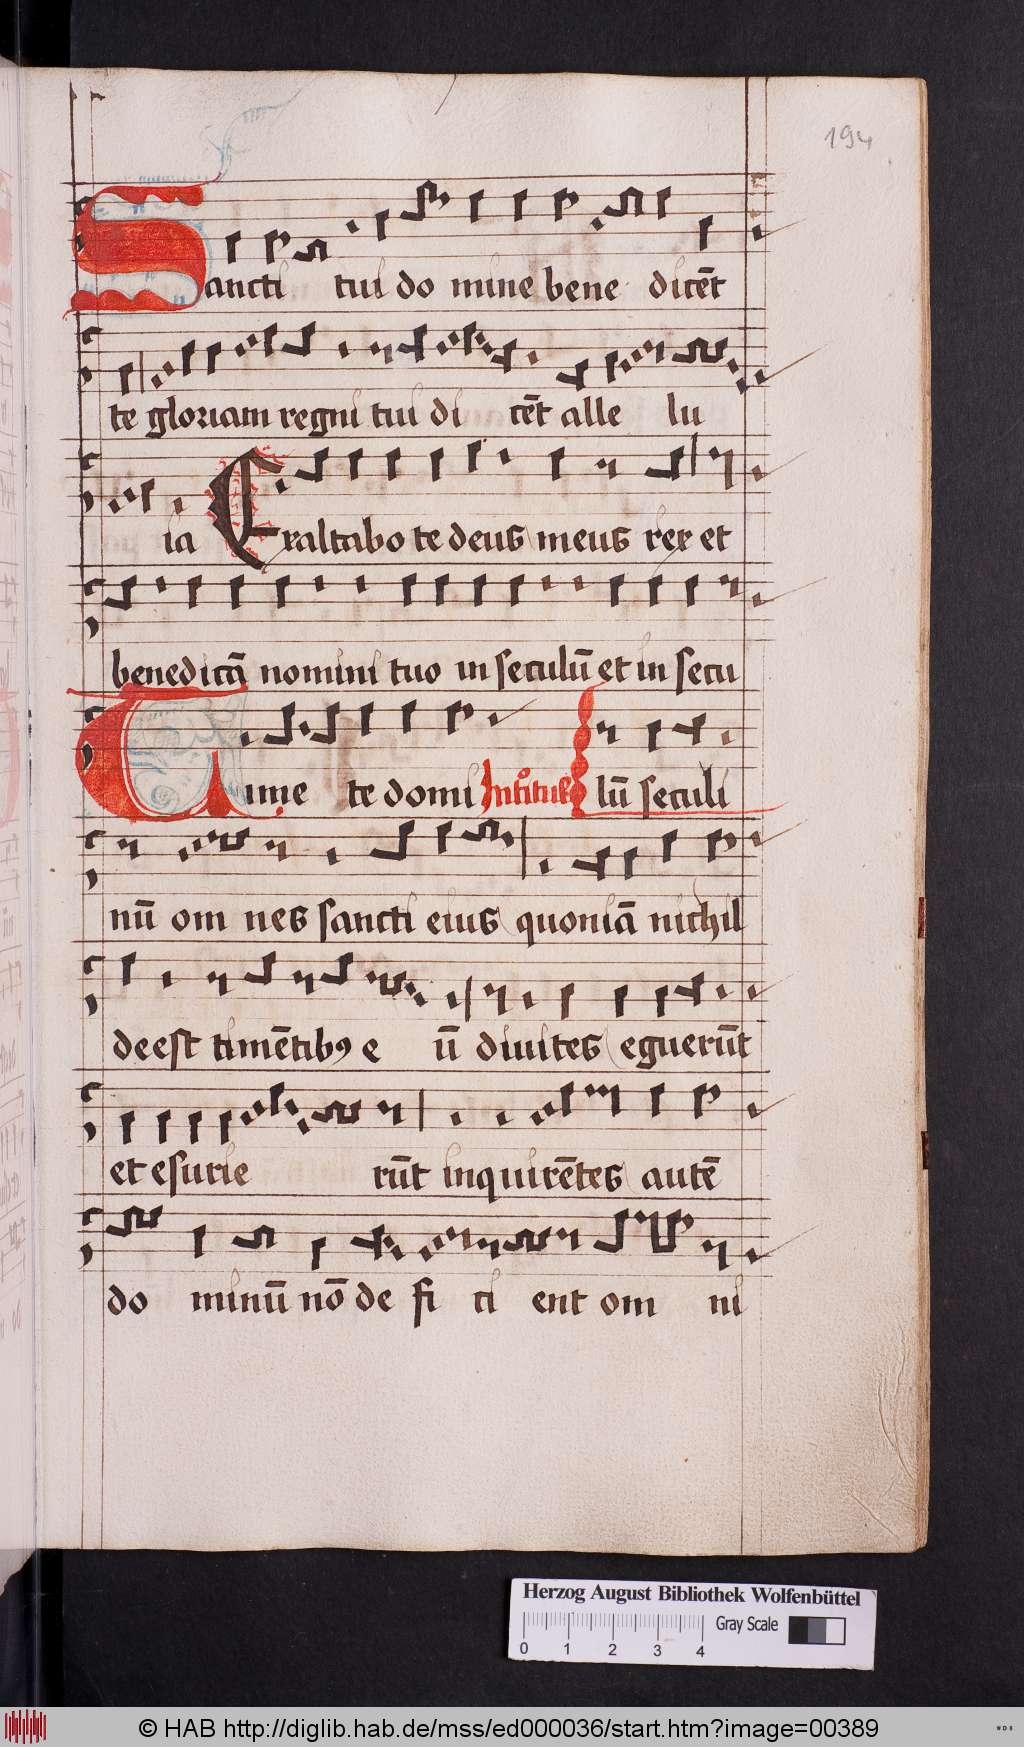 194
Sancti tui domine benedicēt
te gloriam regni tui dicēt allelu
ia Exaltabo te deus meus rex et
benedicā nomini tuo in seculū et in secu
Timete domi lū seculi
nū omnes sancti eius quoniā nichil
deest timētibꝰ eū diuites eguerūt
et esurierūt inquirētes autē
dominū nō deficient omni
Herzog August Bibliothek Wolfenbüttel
Gray Scale
0 1 2 3 4
© HAB http://diglib.hab.de/mss/ed000036/start.htm?image=00389